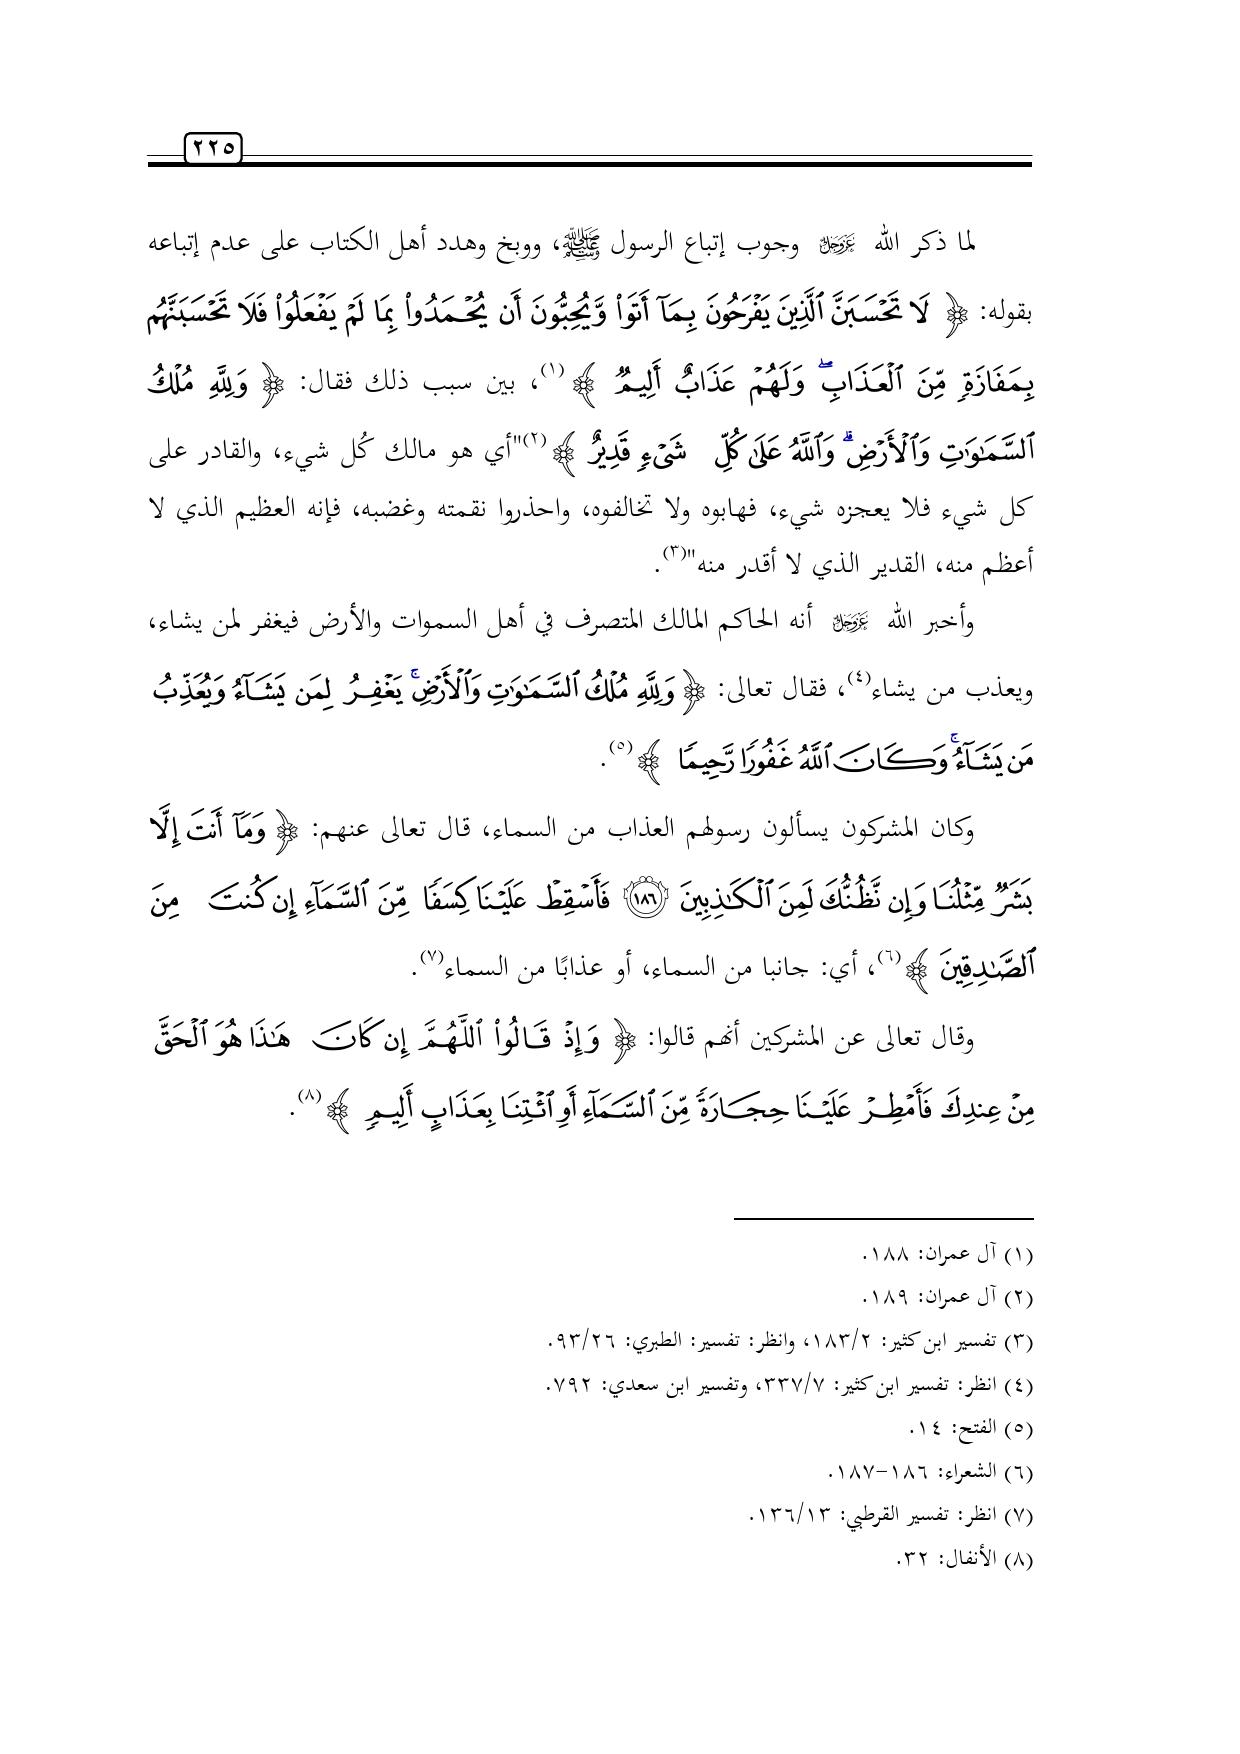 ٢٢٥
لما ذكر الله عَزَّوَجَلَّ وجوب إتباع الرسول ﷺ، ووبخ وهدد أهل الكتاب على عدم إتباعه
بقوله: ﴿ لَا تَحْسَبَنَّ ٱلَّذِينَ يَفْرَحُونَ بِمَآ أَتَوا۟ وَّيُحِبُّونَ أَن يُحْمَدُوا۟ بِمَا لَمْ يَفْعَلُوا۟ فَلَا تَحْسَبَنَّهُم
بِمَفَازَةٍ مِّنَ ٱلْعَذَابِ ۖ وَلَهُمْ عَذَابٌ أَلِيمٌ ﴾(١)، بين سبب ذلك فقال: ﴿ وَلِلَّهِ مُلْكُ
ٱلسَّمَٰوَٰتِ وَٱلْأَرْضِ ۗ وَٱللَّهُ عَلَىٰ كُلِّ شَىْءٍ قَدِيرٌ ﴾(٢)"أي هو مالك كُل شيء، والقادر على
كل شيء فلا يعجزه شيء، فهابوه ولا تخالفوه، واحذروا نقمته وغضبه، فإنه العظيم الذي لا
أعظم منه، القدير الذي لا أقدر منه"(٣).
وأخبر الله عَزَّوَجَلَّ أنه الحاكم المالك المتصرف في أهل السموات والأرض فيغفر لمن يشاء،
ويعذب من يشاء(٤)، فقال تعالى: ﴿ وَلِلَّهِ مُلْكُ ٱلسَّمَٰوَٰتِ وَٱلْأَرْضِ ۚ يَغْفِرُ لِمَن يَشَآءُ وَيُعَذِّبُ
مَن يَشَآءُ ۚ وَكَانَ ٱللَّهُ غَفُورًا رَّحِيمًا ﴾(٥).
وكان المشركون يسألون رسولهم العذاب من السماء، قال تعالى عنهم: ﴿ وَمَآ أَنتَ إِلَّا
بَشَرٌ مِّثْلُنَا وَإِن نَّظُنُّكَ لَمِنَ ٱلْكَٰذِبِينَ ١٨٦ فَأَسْقِطْ عَلَيْنَا كِسَفًا مِّنَ ٱلسَّمَآءِ إِن كُنتَ مِنَ
ٱلصَّٰدِقِينَ ﴾(٦)، أي: جانبا من السماء، أو عذابًا من السماء(٧).
وقال تعالى عن المشركين أنهم قالوا: ﴿ وَإِذْ قَالُوا۟ ٱللَّهُمَّ إِن كَانَ هَٰذَا هُوَ ٱلْحَقَّ
مِنْ عِندِكَ فَأَمْطِرْ عَلَيْنَا حِجَارَةً مِّنَ ٱلسَّمَآءِ أَوِ ٱئْتِنَا بِعَذَابٍ أَلِيمٍ ﴾(٨).
(١) آل عمران: ١٨٨.
(٢) آل عمران: ١٨٩.
(٣) تفسير ابن كثير: ١٨٣/٢، وانظر: تفسير: الطبري: ٩٣/٢٦.
(٤) انظر: تفسير ابن كثير: ٣٣٧/٧، وتفسير ابن سعدي: ٧٩٢.
(٥) الفتح: ١٤.
(٦) الشعراء: ١٨٦-١٨٧.
(٧) انظر: تفسير القرطبي: ١٣٦/١٣.
(٨) الأنفال: ٣٢.